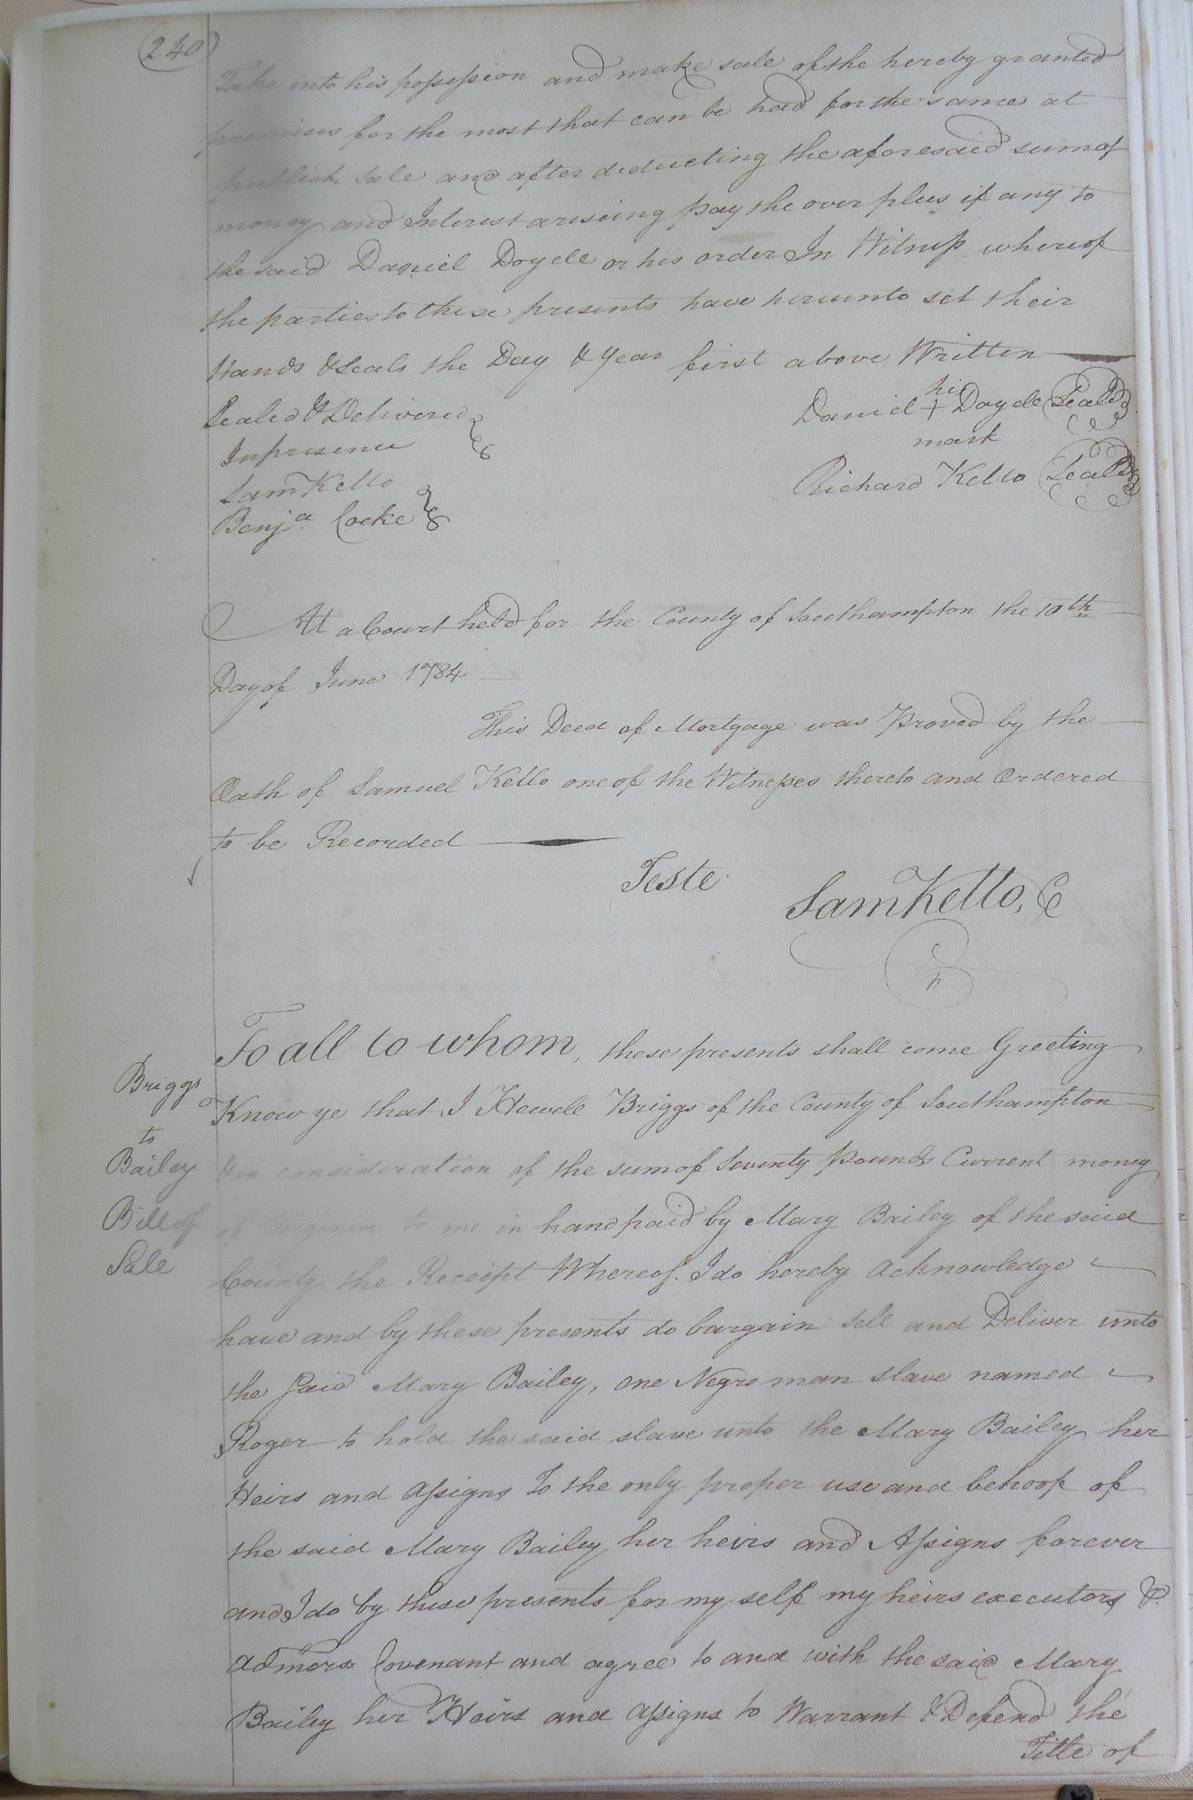 240
Take into his possession and make sale of the hereby granted
premises for the most that can be had for the same at
publick sale and after deducting the aforesaid sum of
money and Interest ariseing pay the over plus if any to
the said Daniel Doyele or his order In Witness whereof
the parties to these presents have hereunto set their
Hands & Seals the Day & Year first above Written
Sealed & Delivered
In presence
Sam Kello
Benja Cocke
his
Daniel + Doyele Seald
mark
Richard Kello Seald
At a Court held for the County of Southampton the 10th
Day of June 1784
This Deed of Mortgage was Proved by the
Oath of Samuel Kello one of the Witnesses thereto and Ordered
to be Recorded
Teste
Sam Kello, C
Briggs
to
Bailey
Bill of
Sale
To all to whom, these presents shall come Greeting
Know ye that I Howell Briggs of the County of Southampton
in consideration of the sum of Seventy pounds Current money
of Virginia to me in hand paid by Mary Bailey of the said
County, the Receipt Whereof I do hereby Acknowledge
have and by these presents do bargain Sell and Deliver unto
the said Mary Bailey, one Negro man slave named
Roger to hold the said slave unto the Mary Bailey her
Heirs and Assigns To the only proper use and behoof of
the said Mary Bailey her heirs and Assigns forever
and I do by these presents for my self my heirs executors &
admors Covenant and agree to and with the said Mary
Bailey her Heirs and assigns to Warrant & Defend the
Title of